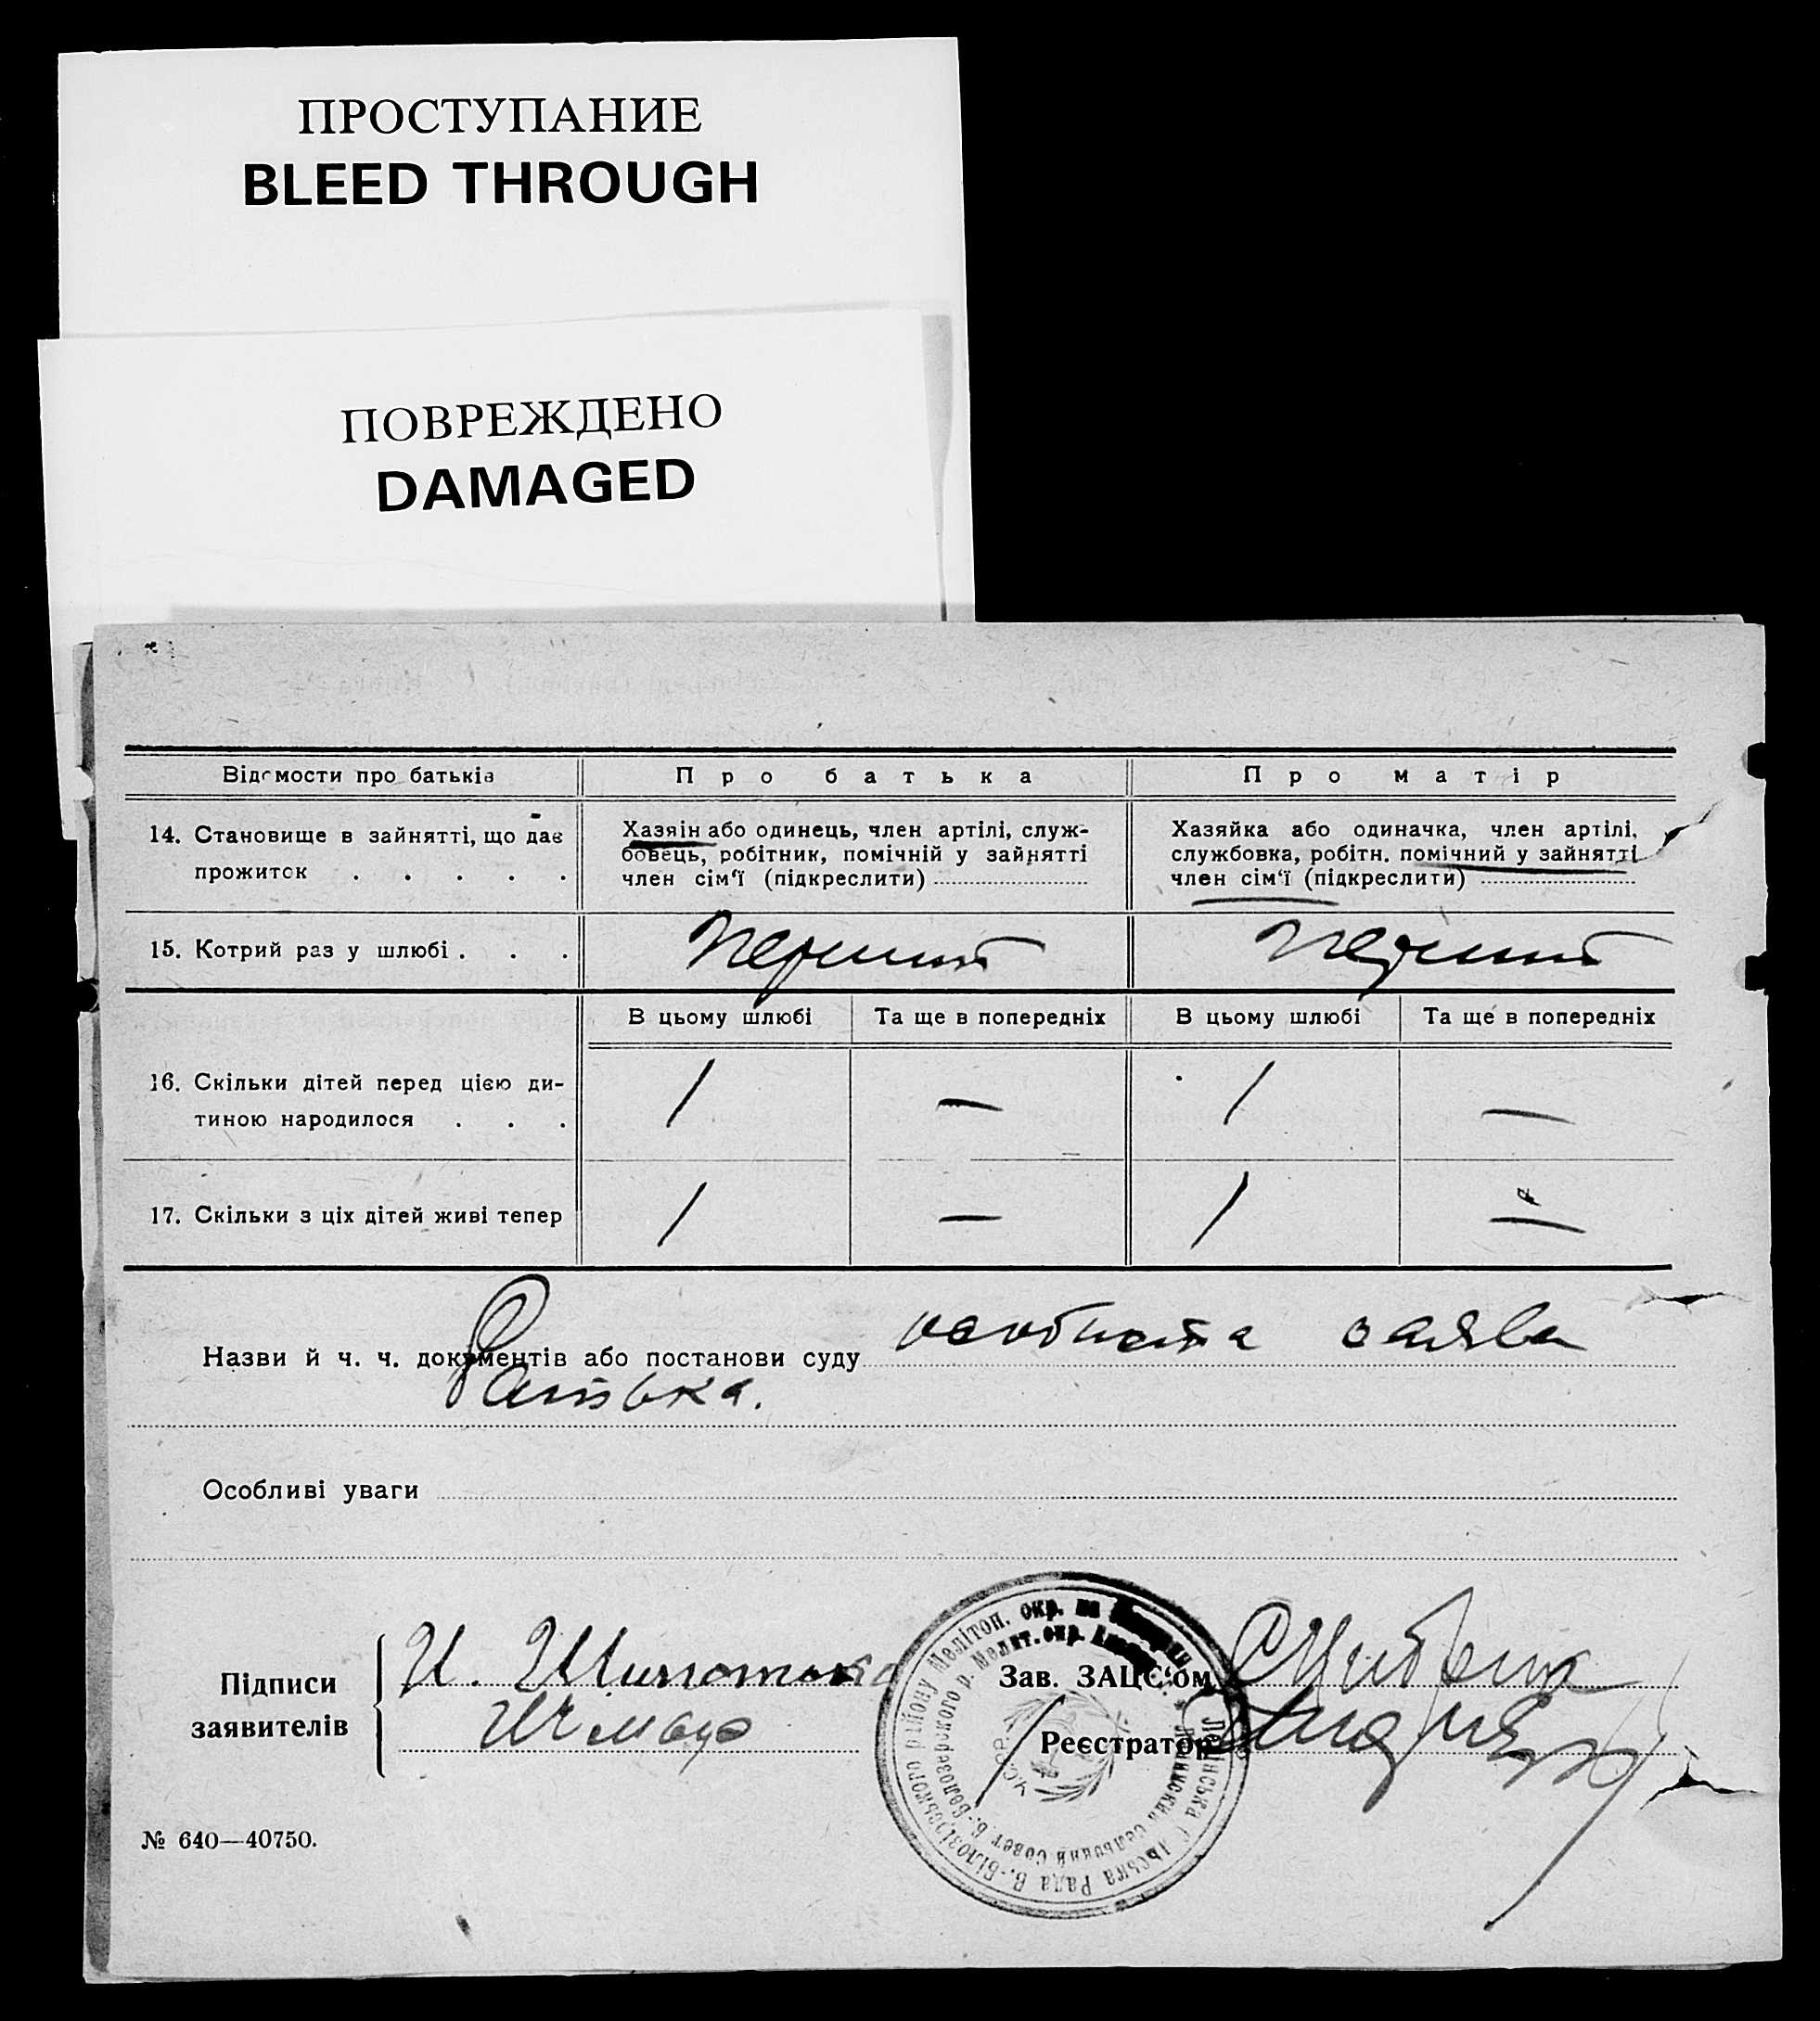 ПРОСТУПАНИЕ
BLEED THROUGH
ПОВРЕЖДЕНО
DAMAGED
Відомости про батьків
Про батька
Про матір
14. Становище в зайнятті, що дає
прожиток . . . . .
Хазяїн або одинець, член артілі, служ-
бовець, робітник, помічній у зайнятті
член сім‘ї (підкреслити)
Хазяйка або одиначка, член артілі,
службовка, робітн. помічний у зайнятті
член сім‘ї (підкреслити)
15. Котрий раз у шлюбі . . .
перший
перший
В цьому шлюбі
Та ще в попередніх
В цьому шлюбі
Та ще в попередніх
16. Скільки дітей перед цією ди-
тиною народилося . . .
1 — 1 —
17. Скільки з ціх дітей живі тепер
1 — 1 —
Назви й ч. ч. документів або постанови суду особиста заява
батька.
Особливі уваги
Підписи
заявителів
И.
Зав. ЗАЦС‘ом
Реєстратор
В.-Білозірського району Мелітоп. окр.
Сельский Совет Б.-Белозерского р. Мелит. окр.
Рада
УСРР
№ 640—40750.